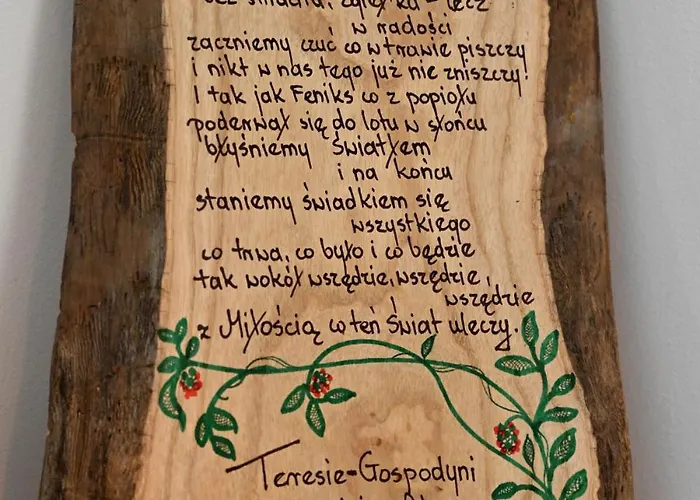 bez śniadu, zgiełku - lecz
w radości
zaczniemy czuć co w trawie piszczy
i nikt w nas tego już nie zniszczy!
I tak jak Feniks co z popiołu
poderwał się do lotu w słońcu
błyśniemy Światłem
i na końcu
staniemy świadkiem się
wszystkiego
co trwa, co było i co będzie
tak wokół wszędzie, wszędzie,
wszędzie
z Miłością co ten Świat uleczy.
Terresie-Gospodyni